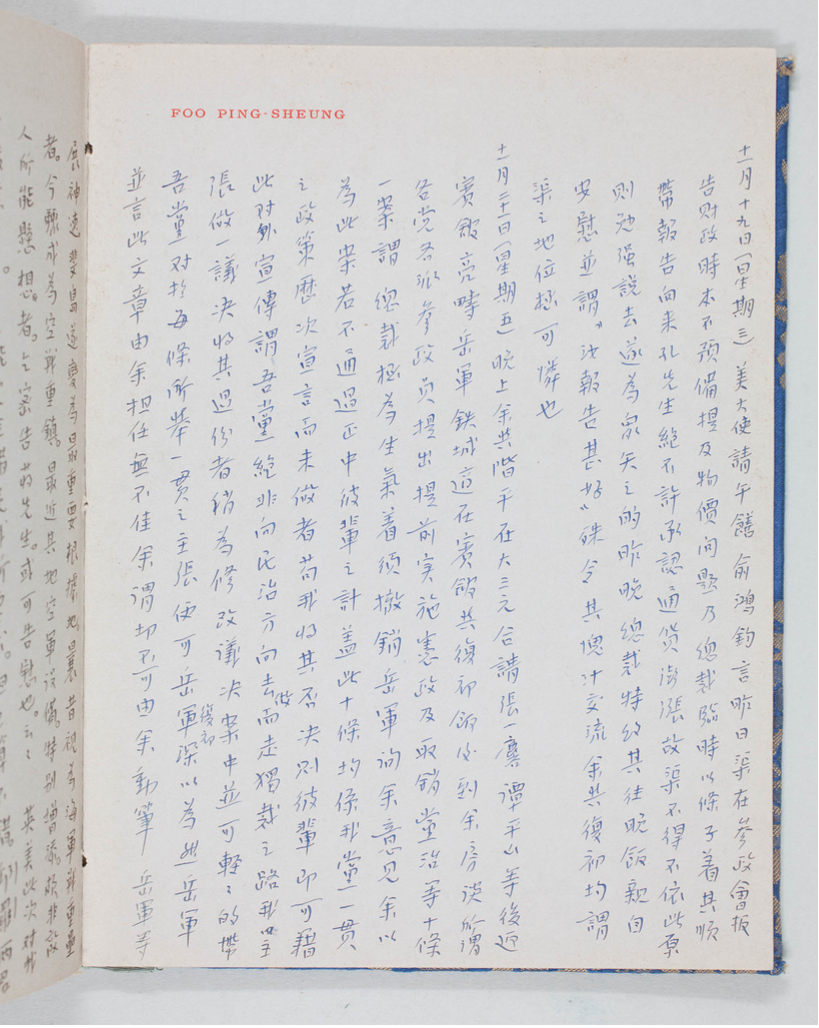 FOO PING-SHEUNG
十一月十九日(星期三) 美大使請午饍俞鴻鈞言昨日渠在參政會報
告財政時本不預備提及物價問題乃總裁臨時以條子着其順
帶報告向來孔先生絕不許承認通貨澎漲故渠不得不依此原
則勉强說去遂為眾矢之的昨晚總裁特約其往晚飯親自
安慰並謂"汝報告甚好"殊令其愧汗交流余與復初均謂
渠之地位極可憐也
十一月二十一日(星期五) 晚上余與階平在大三元合請張一麐譚平山等後返
賓館亮疇岳軍鐵城適在賓館與復初飯後到余房談所謂
各党各派參政員提出提前实施憲政及取銷黨治等十條
一案謂總裁極為生氣着須撤銷岳軍詢余意見余以
為此案若不通過正中彼輩之計蓋此十條均係我黨一貫
之政策歷次宣言而未做者苟我將其否決則彼輩即可藉
此对外宣傳謂吾黨絕非向民治方向去做而走獨裁之路我以主
張做一議決將其過份者稍為修改議決案中並可輕々的帶
吾黨对於每條所举一貫之主張便可岳軍復初深以為然岳軍
並言此文章由余担任無不佳余謂却不可由余動筆 岳軍等
展神速
者。今驟成為空戰重鎮。最近其地空軍設備,特別增添,殊非設
人所能懸想者。